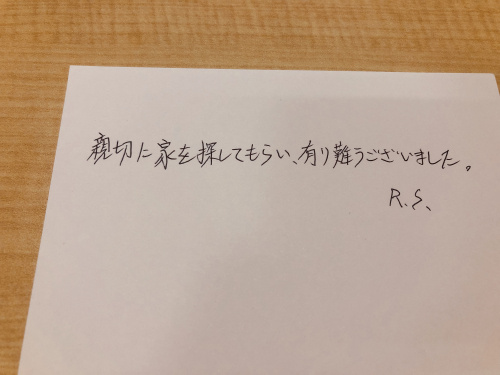 親切に家を探してもらい、有り難うございました。
R.S.